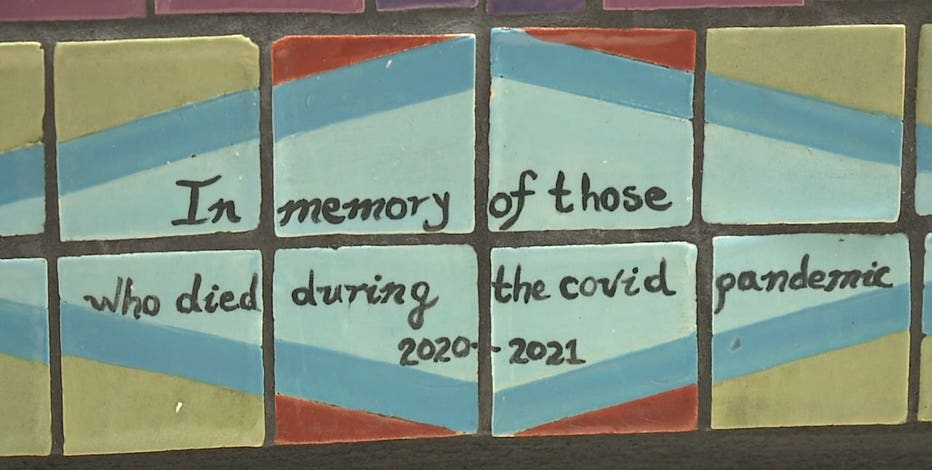 In memory of those
who died during the covid pandemic
2020-2021